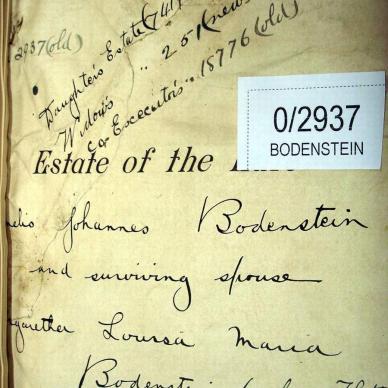 2937 (old)
Daughter's Estate (741
Widow's " 251 (new
Co Excecutor's 18776 (old)
0/2937
BODENSTEIN
Estate of the
Johannes Bodenstein
and surviving spouse
Lourså Maria
Bodenstein